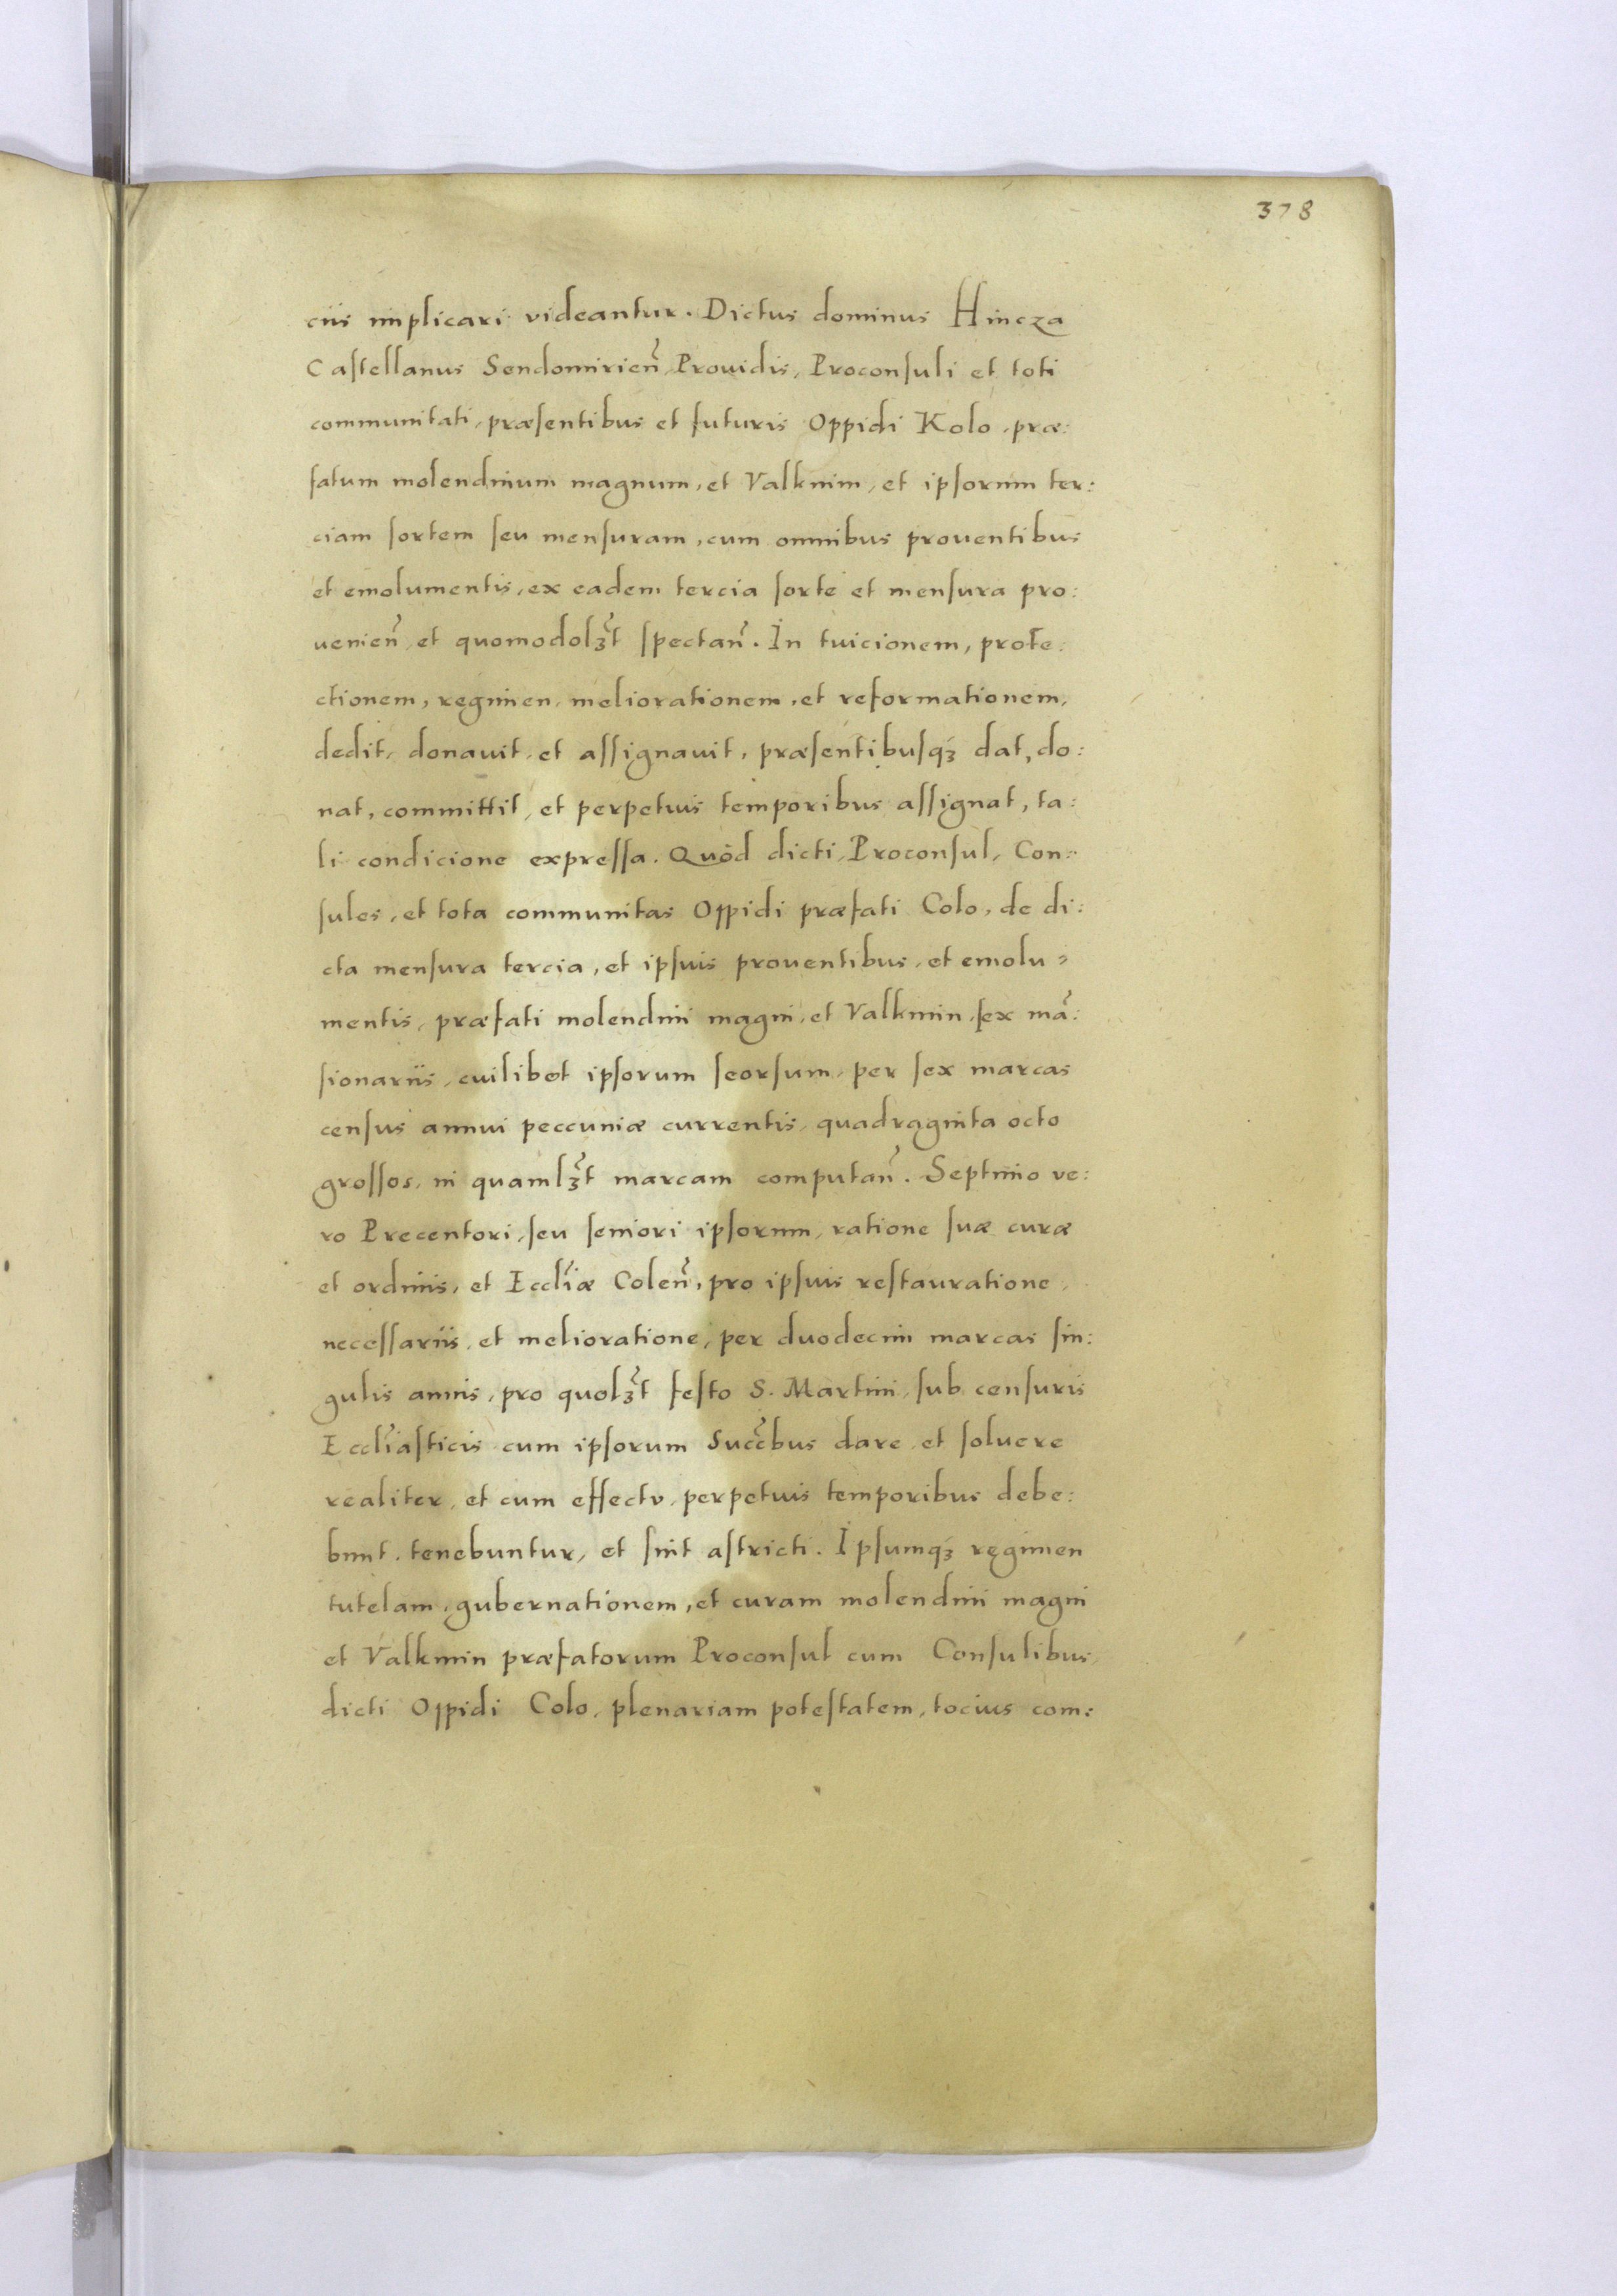 378
ciis implicari videantur. Dictus dominus Hincza
Castellanus Sendomirieñ, Prouidis, Proconsuli et toti
communitati, præsentibus et futuris Oppidi Kolo, præ:
fatum molendinum magnum, et Valknim, et ipsorum ter:
ciam sortem seu mensuram, cum omnibus prouentibus
et emolumentis, ex eadem tercia sorte et mensura pro:
uenieñ, et quomodolꝫt spectañ. In tuicionem, prote:
ctionem, regimen, meliorationem, et reformationem,
dedit, donauit, et assignauit, præsentibusqꝫ dat, do:
nat, committit, et perpetuis temporibus assignat, ta:
li condicione expressa. Quòd dicti, Proconsul, Con:
sules, et tota communitas Oppidi præfati Colo, de di:
cta mensura tercia, et ipsius prouentibus, et emolu:
mentis, præfati molendini magni, et Valkmin, sex mã:
sionariis, cuilibet ipsorum seorsum, per sex marcas
census annui peccuniæ currentis, quadraginta octo
grossos, in quamlꝫt marcam computañ. Septimo ve:
ro Precentori, seu seniori ipsorum, ratione suæ curæ
et ordinis, et Eccl̃iæ Coleñ, pro ipsius restauratione,
necessariis, et melioratione, per duodecim marcas sin:
gulis annis, pro quolꝫt festo S. Martini, sub censuris
Eccl̃iasticis cum ipsorum Succ̃bus dare, et soluere
realiter, et cum effectu, perpetuis temporibus debe:
bunt, tenebuntur, et sint astricti. Ipsumqꝫ regimen
tutelam, gubernationem, et curam molendini magni
et Valkmin præfatorum Proconsul cum Consulibus,
dicti Oppidi Colo, plenariam potestatem, tocius com: